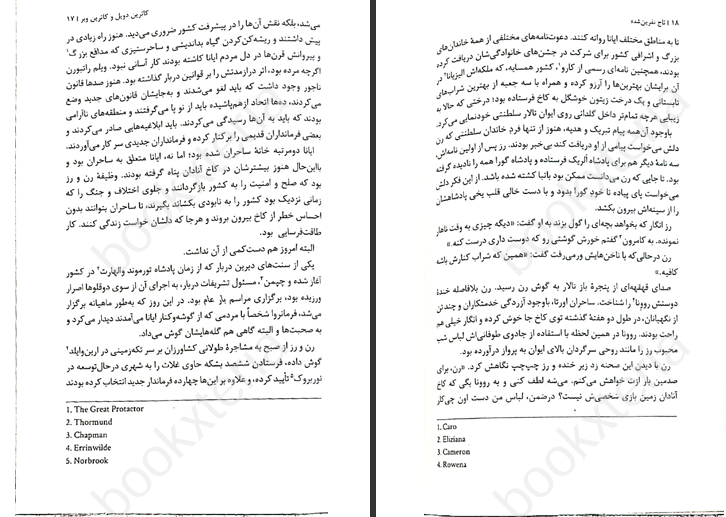 کاترین دویل و کاترین وبر | ۱۷
می‌شد، بلکه نقش آن‌ها را در پیشرفت کشور ضروری می‌دید. هنوز راه زیادی در
پیش داشتند و ریشه‌کن‌کردن گیاه بداندیشی و ساحرستیزی که مدافع بزرگ۱
و پیروانش قرن‌ها در دل مردم ایانا کاشته بودند کار آسانی نبود. ویلم راتبورن
اگرچه مرده بود، اثر درازمدتش را بر قوانین دربار گذاشته بود. هنوز صدها قانون
ناجور وجود داشت که باید لغو می‌شدند و به‌جایشان قانون‌های جدید وضع
می‌کردند، ده‌ها اتحاد ازهم‌پاشیده باید از نو پا می‌گرفتند و منطقه‌های ناآرامی
بودند که باید به آن‌ها رسیدگی می‌کردند. باید ابلاغیه‌هایی صادر می‌کردند و
بعضی فرمانداران قدیمی را برکنار کرده و فرمانداران جدیدی سر کار می‌آوردند.
ایانا دومرتبه خانهٔ ساحران شده بود؛ اما نه، ایانا متعلق به ساحران بود و
بااین‌حال هنوز بیشترشان در کاخ آنادان پناه گرفته بودند. وظیفهٔ رن و رز
بود که صلح و امنیت را به کشور بازگردانند و جلوی اختلاف و جنگ را که
زمانی نزدیک بود کشور را به نابودی بکشاند بگیرند، تا ساحران بتوانند بدون
احساس خطر از کاخ بیرون بروند و هرجا که دلشان خواست زندگی کنند. کار
طاقت‌فرسایی بود.
البته امروز هم دست‌کمی از آن نداشت.
یکی از سنت‌های دیرین دربار که از زمان پادشاه تورموند والهارت۲ در کشور
آغاز شده و چپمن۳، مسئول تشریفات دربار، به اجرای آن از سوی دوقلوها اصرار
ورزیده بود، برگزاری مراسم بار عام بود. در این روز که به‌طور ماهیانه برگزار
می‌شد، فرمانروا شخصاً با مردمی که از گوشه‌وکنار ایانا می‌آمدند دیدار می‌کرد و
به صحبت‌ها و البته گاهی هم گله‌هایشان گوش می‌داد.
رن و رز از صبح به مشاجرهٔ طولانی کشاورزان بر سر تکه‌زمینی در ارین‌وایلد۴
گوش داده، فرستادن ششصد بشکه حاوی غلات را به شهری درحال‌توسعه در
نوربروک۵ تأیید کرده، و علاوه بر این‌ها چهارده فرماندار جدید انتخاب کرده بودند
1. The Great Protactor
2. Thormund
3. Chapman
4. Errinwilde
5. Norbrook
۱۸ | تاج نفرین‌شده
تا به مناطق مختلف ایانا روانه کنند. دعوت‌نامه‌های مختلفی از همهٔ خاندان‌های
بزرگ و اشرافی کشور برای شرکت در جشن‌های خانوادگی‌شان دریافت کرده
بودند، همچنین نامه‌ای رسمی از کارو۱، کشور همسایه، که ملکه‌اش الیزیانا۲ در
آن برایشان بهترین‌ها را آرزو کرده و همراه با سه جعبه از بهترین شراب‌های
تابستانی و یک درخت زیتون خوشگل به کاخ فرستاده بود؛ درختی که حالا به
زیبایی هرچه تمام‌تر داخل گلدانی روی ایوان تالار سلطنتی خودنمایی می‌کرد.
باوجود آن‌همه پیام تبریک و هدیه، هنوز از تنها فردِ خاندان سلطنتی که رن
دلش می‌خواست پیامی از او دریافت کند بی‌خبر بودند. رز پس از اولین نامه‌اش،
سه نامهٔ دیگر هم برای پادشاه آلریک فرستاده و پادشاه گورا همه را نادیده گرفته
بود. تا جایی که رن می‌دانست ممکن بود بانبا کشته شده باشد. از این فکر دلش
می‌خواست پای پیاده تا خود گورا بدود و با دست خالی قلب یخی پادشاهشان
را از سینه‌اش بیرون بکشد.
رز انگار که بخواهد بچه‌ای را گول بزند به او گفت: «دیگه چیزی به وقت ناهار
نمونده. به کامرون۳ گفتم خورش گوشتی رو که دوست داری درست کنه.»
رن درحالی‌که با ناخن‌هایش ورمی‌رفت گفت: «همین که شراب کنارش باشه
کافیه.»
صدای قهقهه‌ای از پنجرهٔ باز تالار به گوش رن رسید. رن بلافاصله خندهٔ
دوستش روونا۴ را شناخت. ساحران اورتا، باوجود آزردگی خدمتکاران و چند تن
از نگهبانان، در طول دو هفتهٔ گذشته توی کاخ جا خوش کرده و انگار خیلی هم
راحت بودند. روونا در همین لحظه با استفاده از جادوی طوفانی‌اش لباس شب
محبوب رز را مانند روحی سرگردان بالای ایوان به پرواز درآورده بود.
رن با دیدن این صحنه زد زیر خنده و رز چپ‌چپ نگاهش کرد. «رن، برای
صدمین بار ازت خواهش می‌کنم. می‌شه لطف کنی و به روونا بگی که کاخ
آنادان زمین بازی شخصی‌ش نیست؟ درضمن، لباس من دست اون چی‌کار
1. Caro
2. Eliziana
3. Cameron
4. Rowena